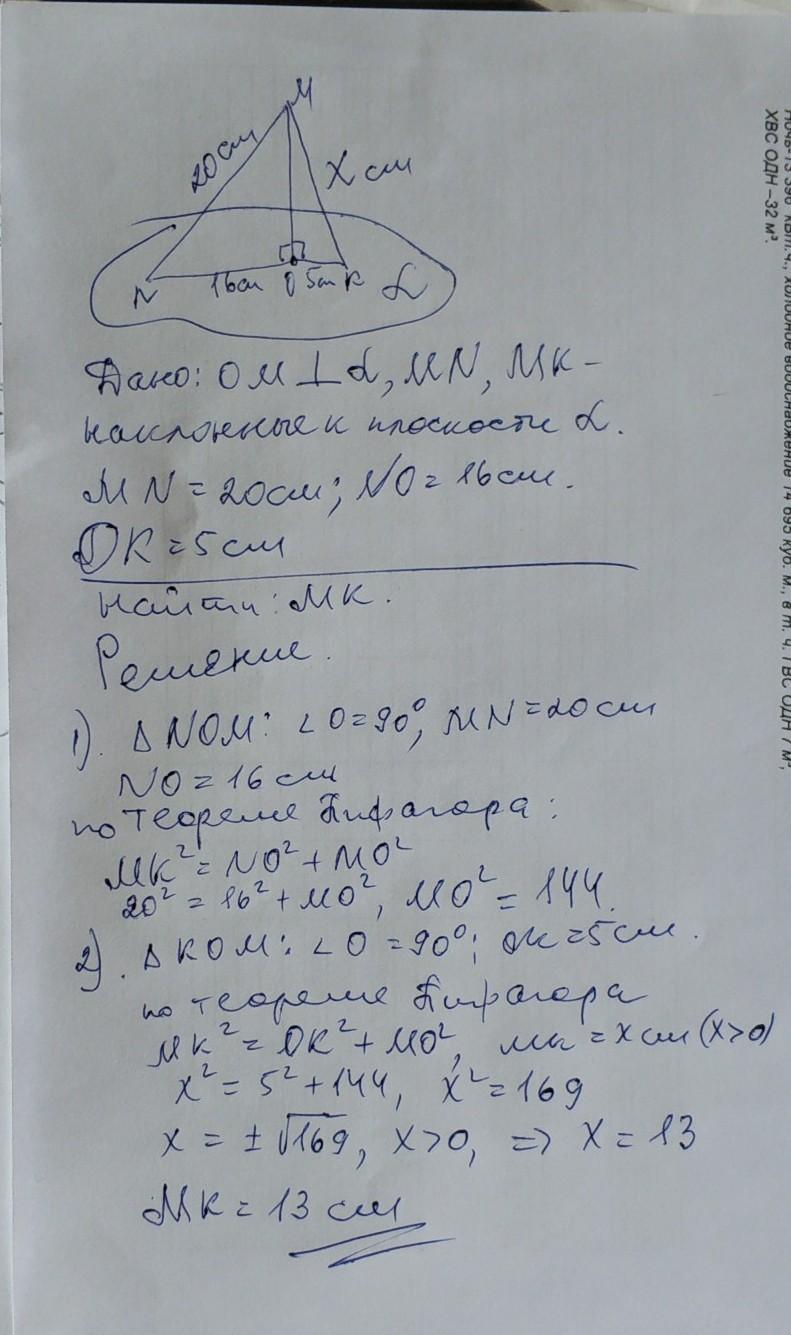 M
20 см
X см
N 16см O 5см K α
Дано: OM⊥α, MN, MK –
наклонные к плоскости α.
MN = 20см; NO = 16см.
OK = 5 см
Найти: MK.
Решение.
1). ΔNOM: ∠O=90°, MN=20см
NO = 16 см
по теореме Пифагора:
MK² = NO² + MO²
20² = 16² + MO², MO² = 144.
2). ΔKOM: ∠O = 90°; OK = 5см.
по теореме Пифагора
MK² = OK² + MO², MK = x см (x>0)
x² = 5² + 144, x² = 169
x = ±√169, x>0, => x = 13
MK = 13 см
холодное водоснабжение 14 695 куб. м., в т. ч. ГВС ОДН 7 м³,
ХВС ОДН –32 м³.